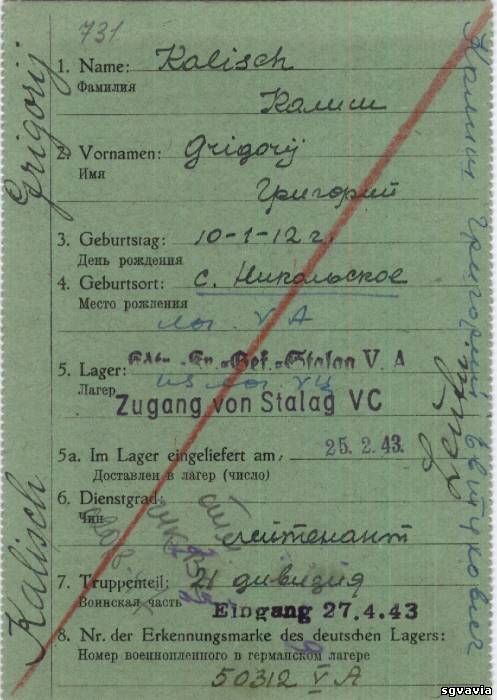 731
1. Name: Kalisch
Фамилия
Калиш
2. Vornamen: Grigorij
Имя
Григорий
3. Geburtstag: 10-1-12 г.
День рождения
4. Geburtsort: с. Никольское
Место рождения
лаг. V A
5. Lager: Stalag V. A
Лагерь
Zugang von Stalag VC
5a. Im Lager eingeliefert am: 25. 2. 43.
Доставлен в лагерь (число)
6. Dienstgrad:
Чин
лейтенант
7. Truppenteil: 21 дивизия
Воинская часть
Eingang 27.4.43
8. Nr. der Erkennungsmarke des deutschen Lagers:
Номер военнопленного в германском лагере
50312 V A
Grigorij
Kalisch
Григорий
sgvavia